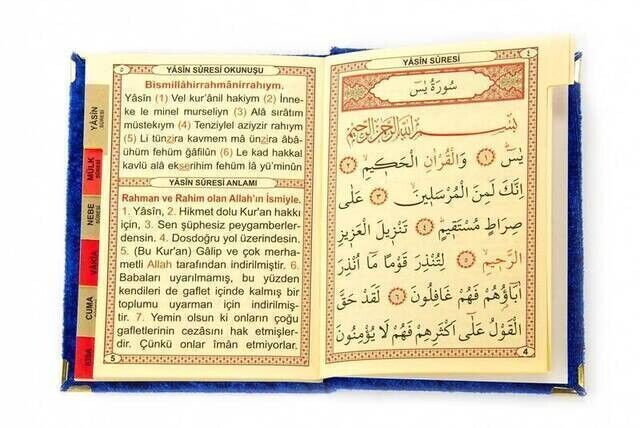 YÂSİN SÛRESİ
٤
سُورَةُ يٰسٓ
بِسْمِ اللّٰهِ الرَّحْمٰنِ الرَّحِيمِ
يٰسٓ ﴿١﴾ وَالْقُرْاٰنِ الْحَكِيمِ ﴿٢﴾
اِنَّكَ لَمِنَ الْمُرْسَلِينَ ﴿٣﴾ عَلٰى
صِرَاطٍ مُسْتَقِيمٍ ﴿٤﴾ تَنْزِيلَ الْعَزِيزِ
الرَّحِيمِ ﴿٥﴾ لِتُنْذِرَ قَوْمًا مَٓا اُنْذِرَ
اٰبَٓاؤُ۬هُمْ فَهُمْ غَافِلُونَ ﴿٦﴾ لَقَدْ حَقَّ
الْقَوْلُ عَلٰٓى اَكْثَرِهِمْ فَهُمْ لَا يُؤْمِنُونَ
4
٥
YÂSİN SÛRESİ OKUNUŞU
Bismillâhirrahmânirrahıym.
Yâsîn (1) Vel kur'ânil hakiym (2) İnne-
ke le minel murseliyn (3) Alâ sıratım
müstekıym (4) Tenziylel aziyzir rahıym
(5) Li tünzira kavmem mâ ünzira âbâ-
ühüm fehüm ğâfilûn (6) Le kad hakkal
kavlü alâ ekserihim fehüm lâ yü'minûn
YÂSİN SÛRESİ ANLAMI
Rahman ve Rahim olan Allah'ın İsmiyle.
1. Yâsîn, 2. Hikmet dolu Kur'an hakkı
için, 3. Sen şüphesiz peygamberler-
densin. 4. Dosdoğru yol üzerindesin.
5. (Bu Kur'an) Gâlip ve çok merha-
metli Allah tarafından indirilmiştir. 6.
Babaları uyarılmamış, bu yüzden
kendileri de gaflet içinde kalmış bir
toplumu uyarman için indirilmiş-
tir. 7. Yemin olsun ki onların çoğu
gafletlerinin cezasını hak etmişler-
dir. Çünkü onlar îmân etmiyorlar.
5
YÂSİN
SÛRESİ
MÜLK
SÛRESİ
NEBE
SÛRESİ
VÂKIA
CUMA
KISA